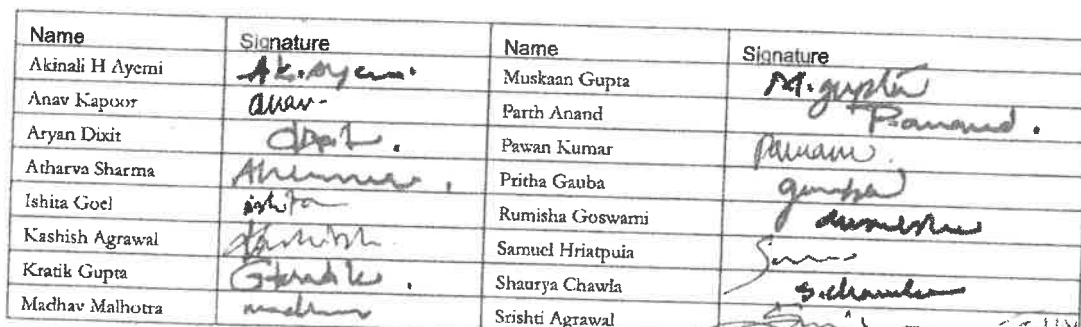 Name Signature Name Signature
Akinali H Ayemi Ak. Ayemi Muskaan Gupta M. gupta
Anav Kapoor anav Parth Anand P.anand.
Aryan Dixit Pawan Kumar Pawan
Atharva Sharma Pritha Gauba
Ishita Goel ishita Rumisha Goswami
Kashish Agrawal Kashish Samuel Hriatpuia
Kratik Gupta Shaurya Chawla S.chawla
Madhav Malhotra Srishti Agrawal